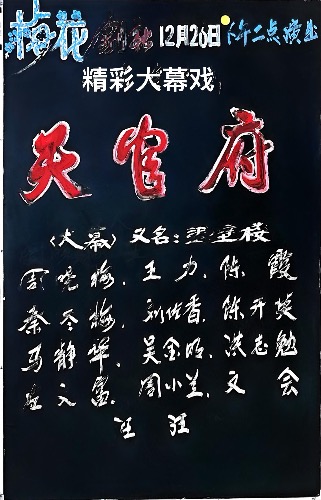 梅花 剧社 12月26日 下午二点演出
精彩大幕戏
天官府
〈大幕〉又名：
周晓梅、王力、陈霞
秦冬梅、刘优香、陈开英
马静华、吴金明、洪志勉
文蛋、周小兰、文会
王珏